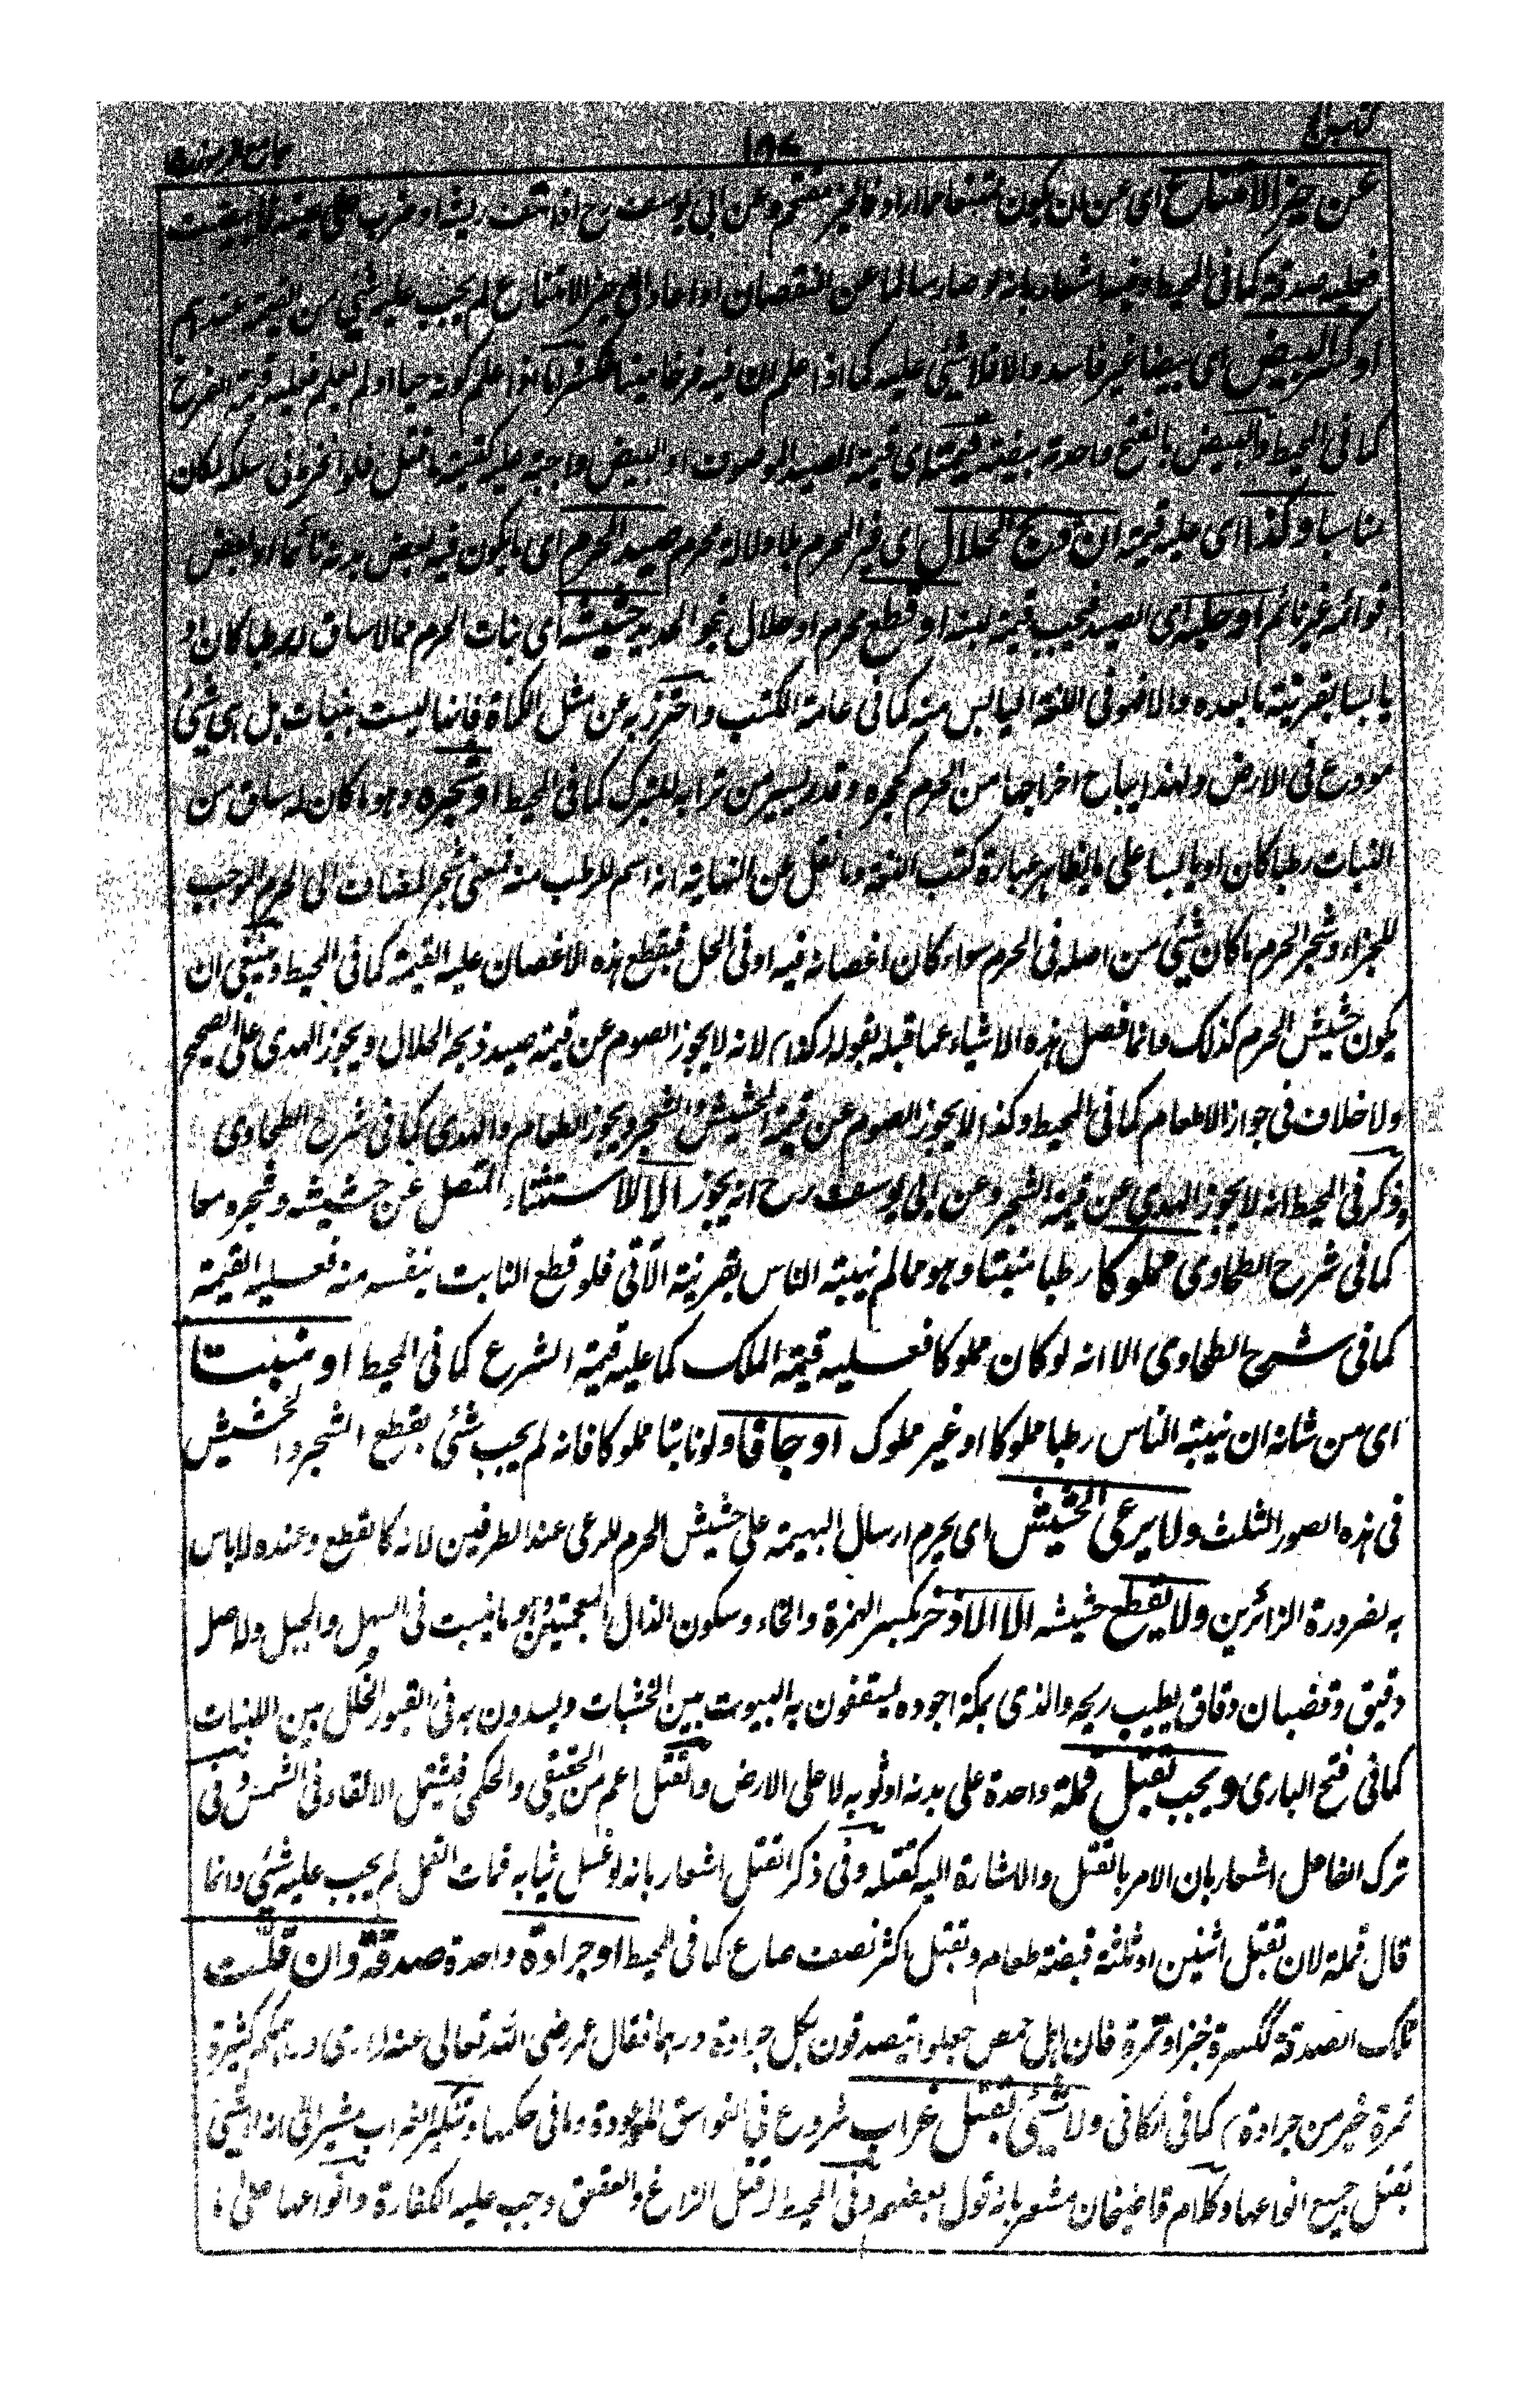 عن حيز الامتناع اى عن ان يكون ممتنعا مما اراد فالحيز مقحم وعن ابى يوسف رح اذا نتف ريشا او ضرب على عينه فابيضت
فعليه صدقة كما فى المحيط وفيه اشعار بانه لو صار سالما عن النقصان او اعاد الى حيز الامتناع لم يجب عليه شئ من القيمة عندهم
او كسر البيض اى بيضا غير فاسد والا فلا شئ عليه كما اذا علم ان فيه فرخا ميتا علم كونه حيا او لم يعلم فعليه قيمة الفرخ
كما فى المحيط والبيض بالفتح واحدة بيضة قيمته اى قيمة الصيد الموصوف او البيض واجبة عليه
وكذا اى عليه قيمته ان ذبح الحلال اى غير المحرم بلا دلالة محرم صيد الحرم اى ما يكون فيه بعض بدنه نائما او بعض
قوائمه غير نائم او حلبه اى الصيد فيجب قيمة لبنه او قطع محرم او حلال نحو المدية حشيشه اى نبات الحرم مما لا ساق له رطبا كان او
يابسا بقرينة ما بعده والا فهو فى اللغة اليابس منه كما فى عامة الكتب واحترز به عن مثل الكماة فانها ليست بنبات بل هى شئ
مودع فى الارض ولهذا يباح اخراجها من الحرم كحجره وقدر يسير من ترابه للتبرك كما فى المحيط او شجره وهو ما كان له ساق من
النبات رطبا كان او يابسا على ما يظاهر عبارة كتب اللغة وما نقل عن النهاية انه اسم للرطب منه فمعنى شجر المضاف الى الحرم الموجب
للجزاء وشجر الحرم ما كان شئ من اصله فى الحرم سواء كان اغصانه فيه او فى الحل فبقطع هذه الاغصان عليه القيمة كما فى المحيط وينبغى ان
يكون حشيش الحرم كذلك وانما فصل هذه الاشياء عما قبله بقوله وكذا لانه لا يجوز الصوم عن قيمة صيد ذبحه الحلال ويجوز الهدى على الصحيح
ولا خلاف فى جواز الاطعام كما فى المحيط وكذا لا يجوز الصوم عن قيمة الحشيش والشجر ويجوز الطعام والهدى كما فى شرح الطحاوى
وذكر فى المحيط انه لا يجوز الهدى عن قيمة الشجر وعن ابى يوسف رح انه يجوز الا الاستثناء المتصل عن حشيشه وشجره معا
كما فى شرح الطحاوى مملوكا رطبا منبتا وهو ما لم ينبته الناس بقرينة الآتى فلو قطع النابت بنفسه منه فعليه القيمة
كما فى شرح الطحاوى الا انه لو كان مملوكا فعليه قيمة الملك كما عليه قيمة الشرع كما فى المحيط او منبتا
اى من شانه ان ينبته الناس رطبا مملوكا او غير مملوك او جافا ولو نابتا مملوكا فانه لم يجب شئ بقطع الشجر والحشيش
فى هذه الصور الثلث ولا يرعى الحشيش اى يحرم ارسال البهيمة على حشيش الحرم للرعى عند الطرفين لانه كالقطع وعنده لا باس
به لضرورة الزائرين ولا يقطع حشيشه الا الاذخر بكسر الهمزة والخاء وسكون الذال المعجمتين وهو ما ينبت فى السهل والجبل وله اصل
دقيق وقضبان دقاق يطيب ريحه والذى بمكة اجوده يسقفون به البيوت بين الخشبات ويسدون به فى القبور الخلل بين اللبنات
كما فى فتح البارى ويجب بقتل قملة واحدة على بدنه او ثوبه لا على الارض والقتل اعم من الحقيقى والحكمى فيشتمل الالقاء فى الشمس وفى
ترك الفاعل اشعار بان الامر بالقتل والاشارة اليه كقتله وفى ذكر القتل اشعار بانه لو غسل ثيابه فمات القمل لم يجب عليه شئ وانما
قال قملة لان بقتل اثنين او ثلثة قبضة طعام وبقتل اكثر نصف صاع كما فى المحيط او جرادة واحدة صدقة وان قلت
تلك الصدقة ككسرة خبز او تمرة فان اهل حمص جعلوا يتصدقون بكل جرادة درهما فقال عمر رضى الله تعالى عنه ارى دراهمكم كثيرة
تمرة خير من جرادة كما فى الكافى ولا شئ بقتل غراب شروع فى الفواسق المعدودة وما فى حكمها وتنكير الغراب مشير الى انه لا شئ
بقتل جميع انواعها وكلام قاضيخان مشعر بانه قول بعضهم وفى المحيط لو قتل الزاغ والعقعق وجب عليه الكفارة وانواعها على